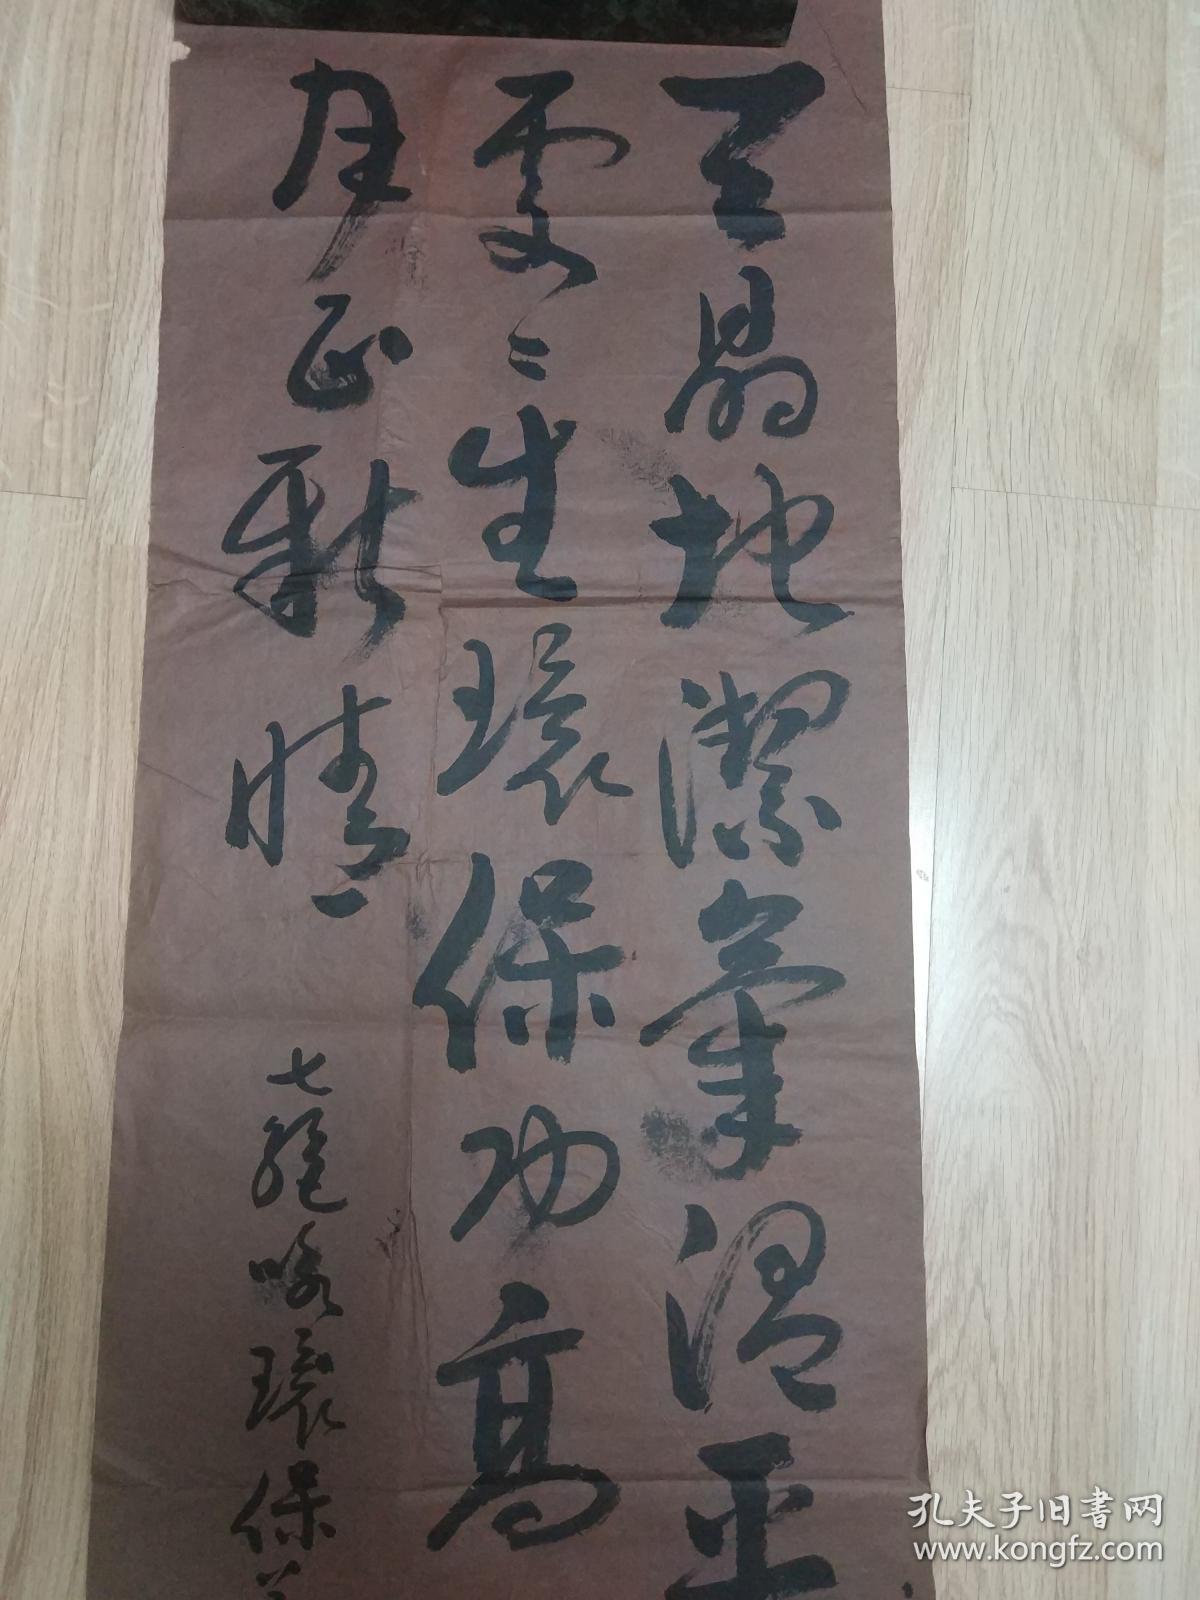 天晶地潔氣溫平
處處生環保功高
月正新晴
七絕咏環保
孔夫子旧书网
www.kongfz.com